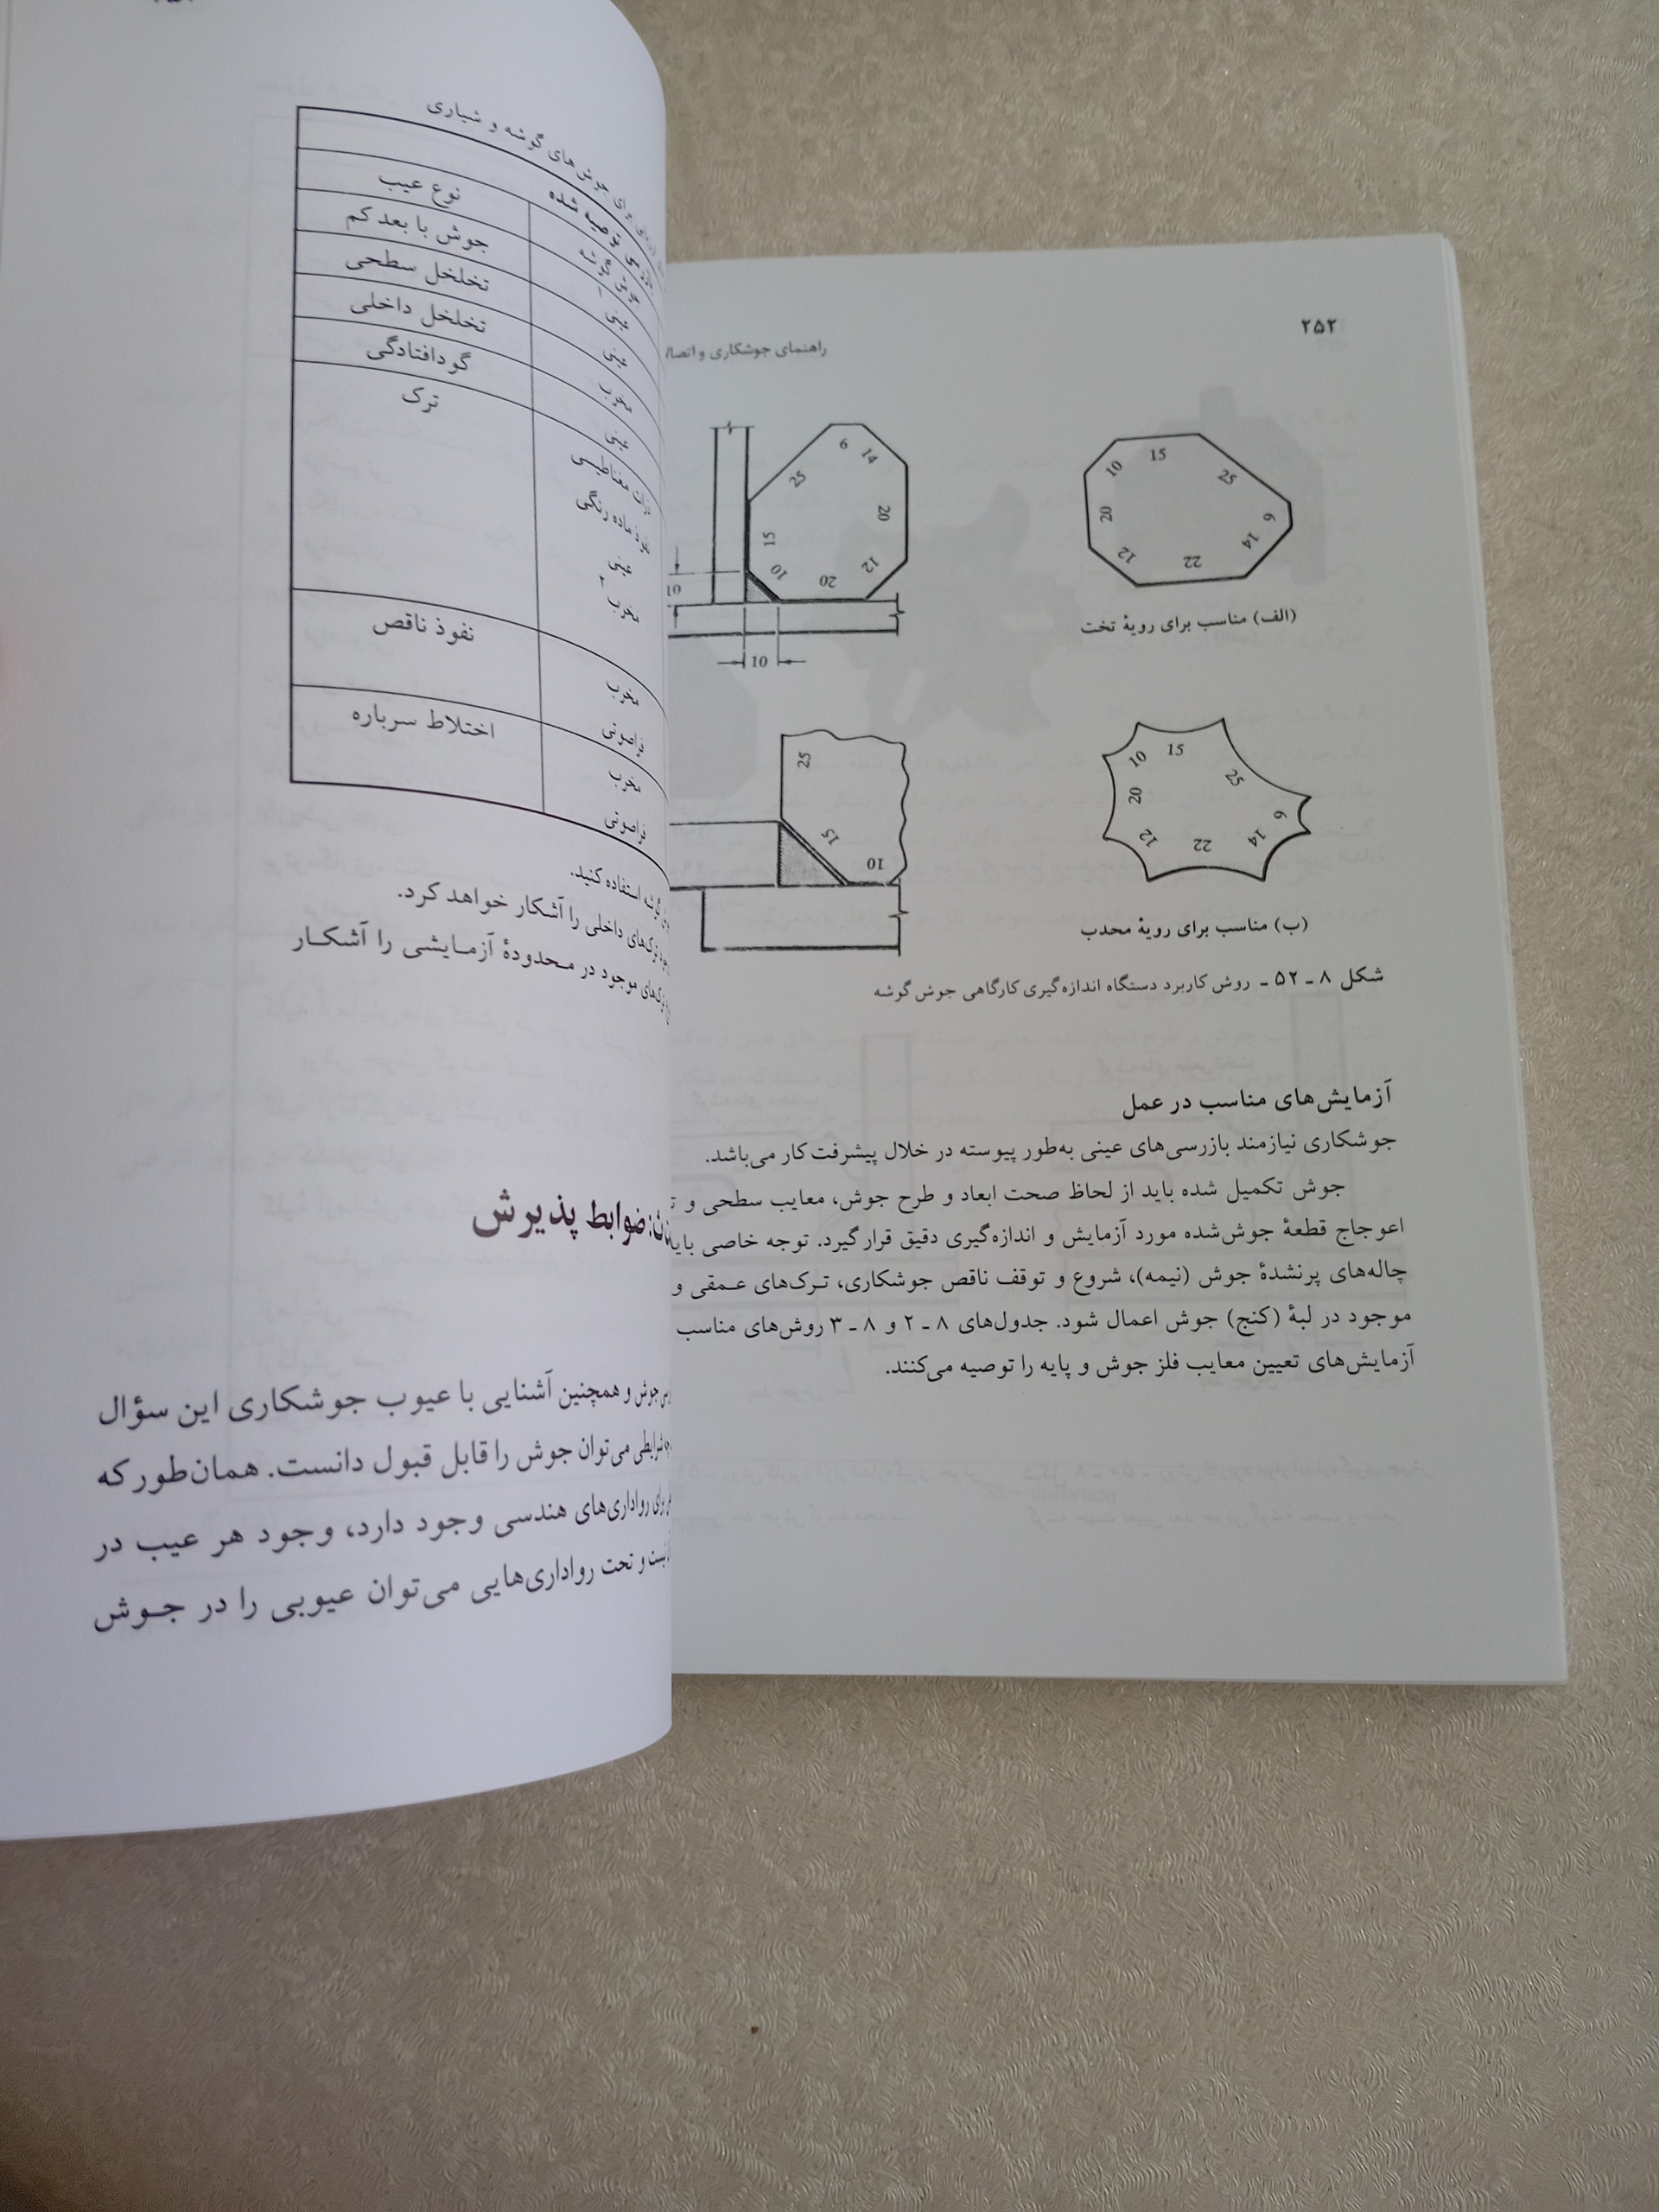 ۲۵۲
راهنمای جوشکاری و
6
14
25
20
15
10
20
12
10
10
15
10
25
20
6
14
12
22
(الف) مناسب برای رویهٔ تخت
25
15
10
15
10
25
20
6
14
12
22
(ب) مناسب برای رویهٔ محدب
شکل ۸ ـ ۵۲ ـ روش کاربرد دستگاه اندازه‌گیری کارگاهی جوش گوشه
آزمایش‌های مناسب در عمل
جوشکاری نیازمند بازرسی‌های عینی به‌طور پیوسته در خلال پیشرفت کار می‌باشد.
جوش تکمیل شده باید از لحاظ صحت ابعاد و طرح جوش، معایب سطحی و
اعوجاج قطعهٔ جوش‌شده مورد آزمایش و اندازه‌گیری دقیق قرار گیرد. توجه خاصی
چاله‌های پرنشدهٔ جوش (نیمه)، شروع و توقف ناقص جوشکاری، ترک‌های عمقی و
موجود در لبهٔ (کنج) جوش اعمال شود. جدول‌های ۸ ـ ۲ و ۸ ـ ۳ روش‌های مناسب
آزمایش‌های تعیین معایب فلز جوش و پایه را توصیه می‌کنند.
برای جوش‌های گوشه و شیاری
توصیه شده
نوع عیب
گوشه
جوش با بعد کم
عینی
تخلخل سطحی
عینی
تخلخل داخلی
مخرب
گودافتادگی
عینی
ترک
ذرات مغناطیسی
نفوذ ماده رنگی
عینی
مخرب ۲
نفوذ ناقص
مخرب
فراصوتی
اختلاط سرباره
مخرب
فراصوتی
گوشه استفاده کنید.
ترک‌های داخلی را آشکار خواهد کرد.
ترک‌های موجود در محدودهٔ آزمایشی را آشکار
ضوابط پذیرش
جوش و همچنین آشنایی با عیوب جوشکاری این سؤال
شرایطی می‌توان جوش را قابل قبول دانست. همان‌طور که
برای رواداری‌های هندسی وجود دارد، وجود هر عیب در
و تحت رواداری‌هایی می‌توان عیوبی را در جوش